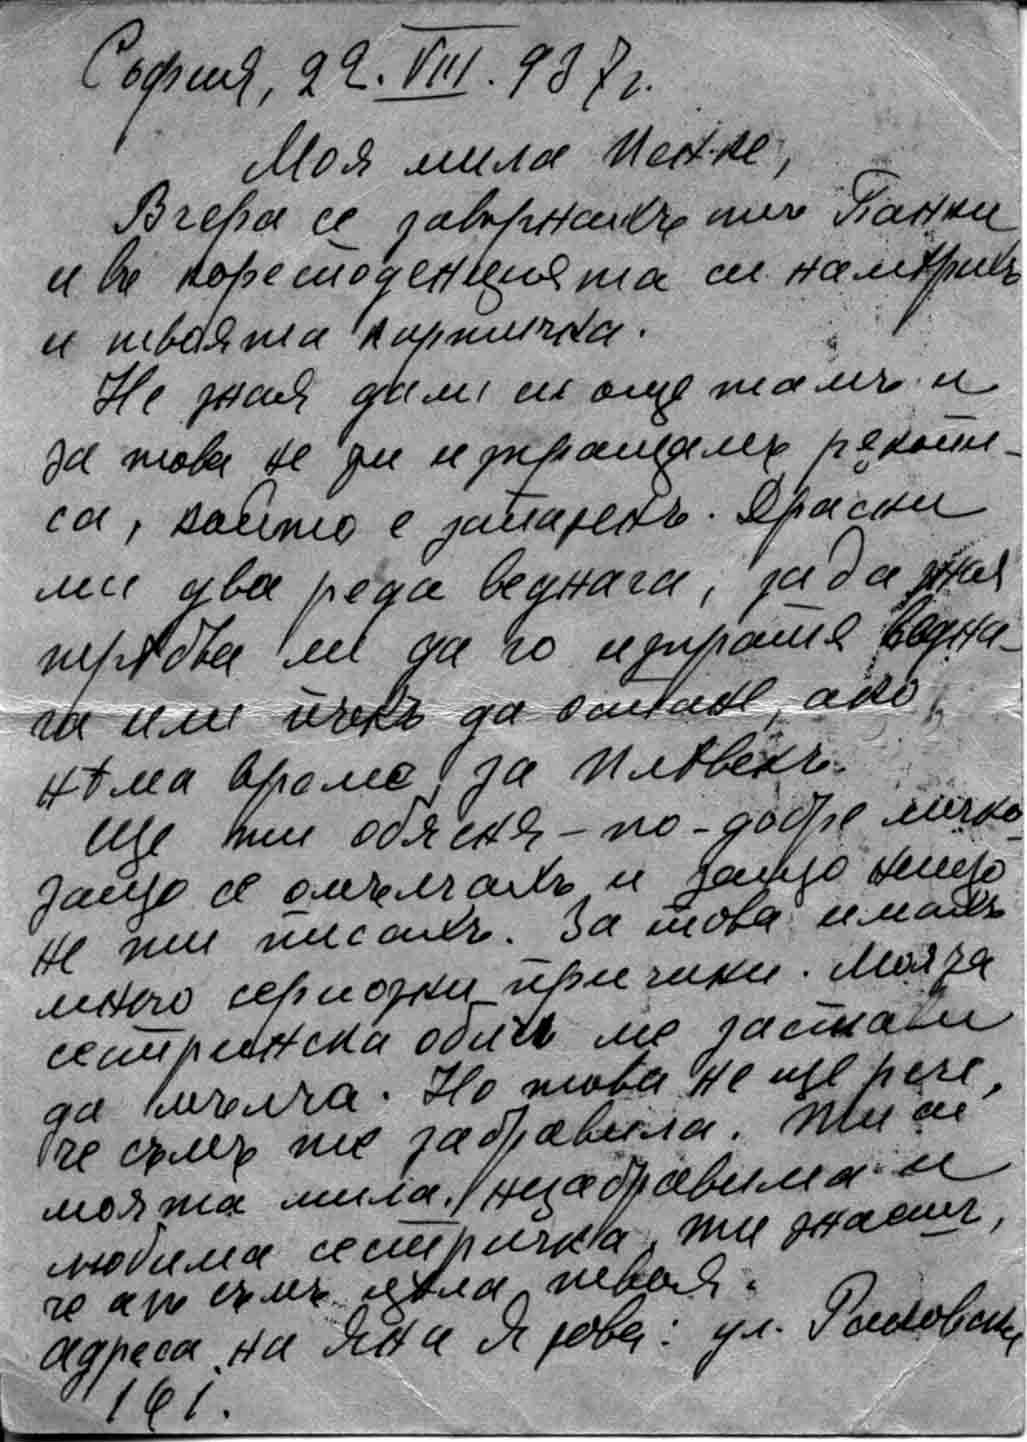 София, 22. VIII. 937 г.
Моя мила Пенке,
Вчера се завърнахъ тъч Панки
и въ коресподенцията си намѣрихъ
и твоята картичка.
Не зная дали си още тамъ и
за това не ти изпращамъ рѫкопи-
са, който е запазенъ. Драсни
ми два реда веднага, за да зная
трѣбва ли да го изпратя ведна-
га или пъкъ да остане, ако
нѣма време, за Плѣвенъ.
Ще ти обясня – по-добре лично
защо се омълчахъ и защо нищо
не ти писахъ. За това имахъ
много сериозни причини. Моята
сестринска обичь ме застави
да мълча. Но това не ще рече,
че съмъ те забравила. Ти си
моята мила, незабравима и
любима сестричка, ти знаешъ,
че азъ съмъ цѣла твоя.
адреса на Яна Язова: ул. Раковски
161.